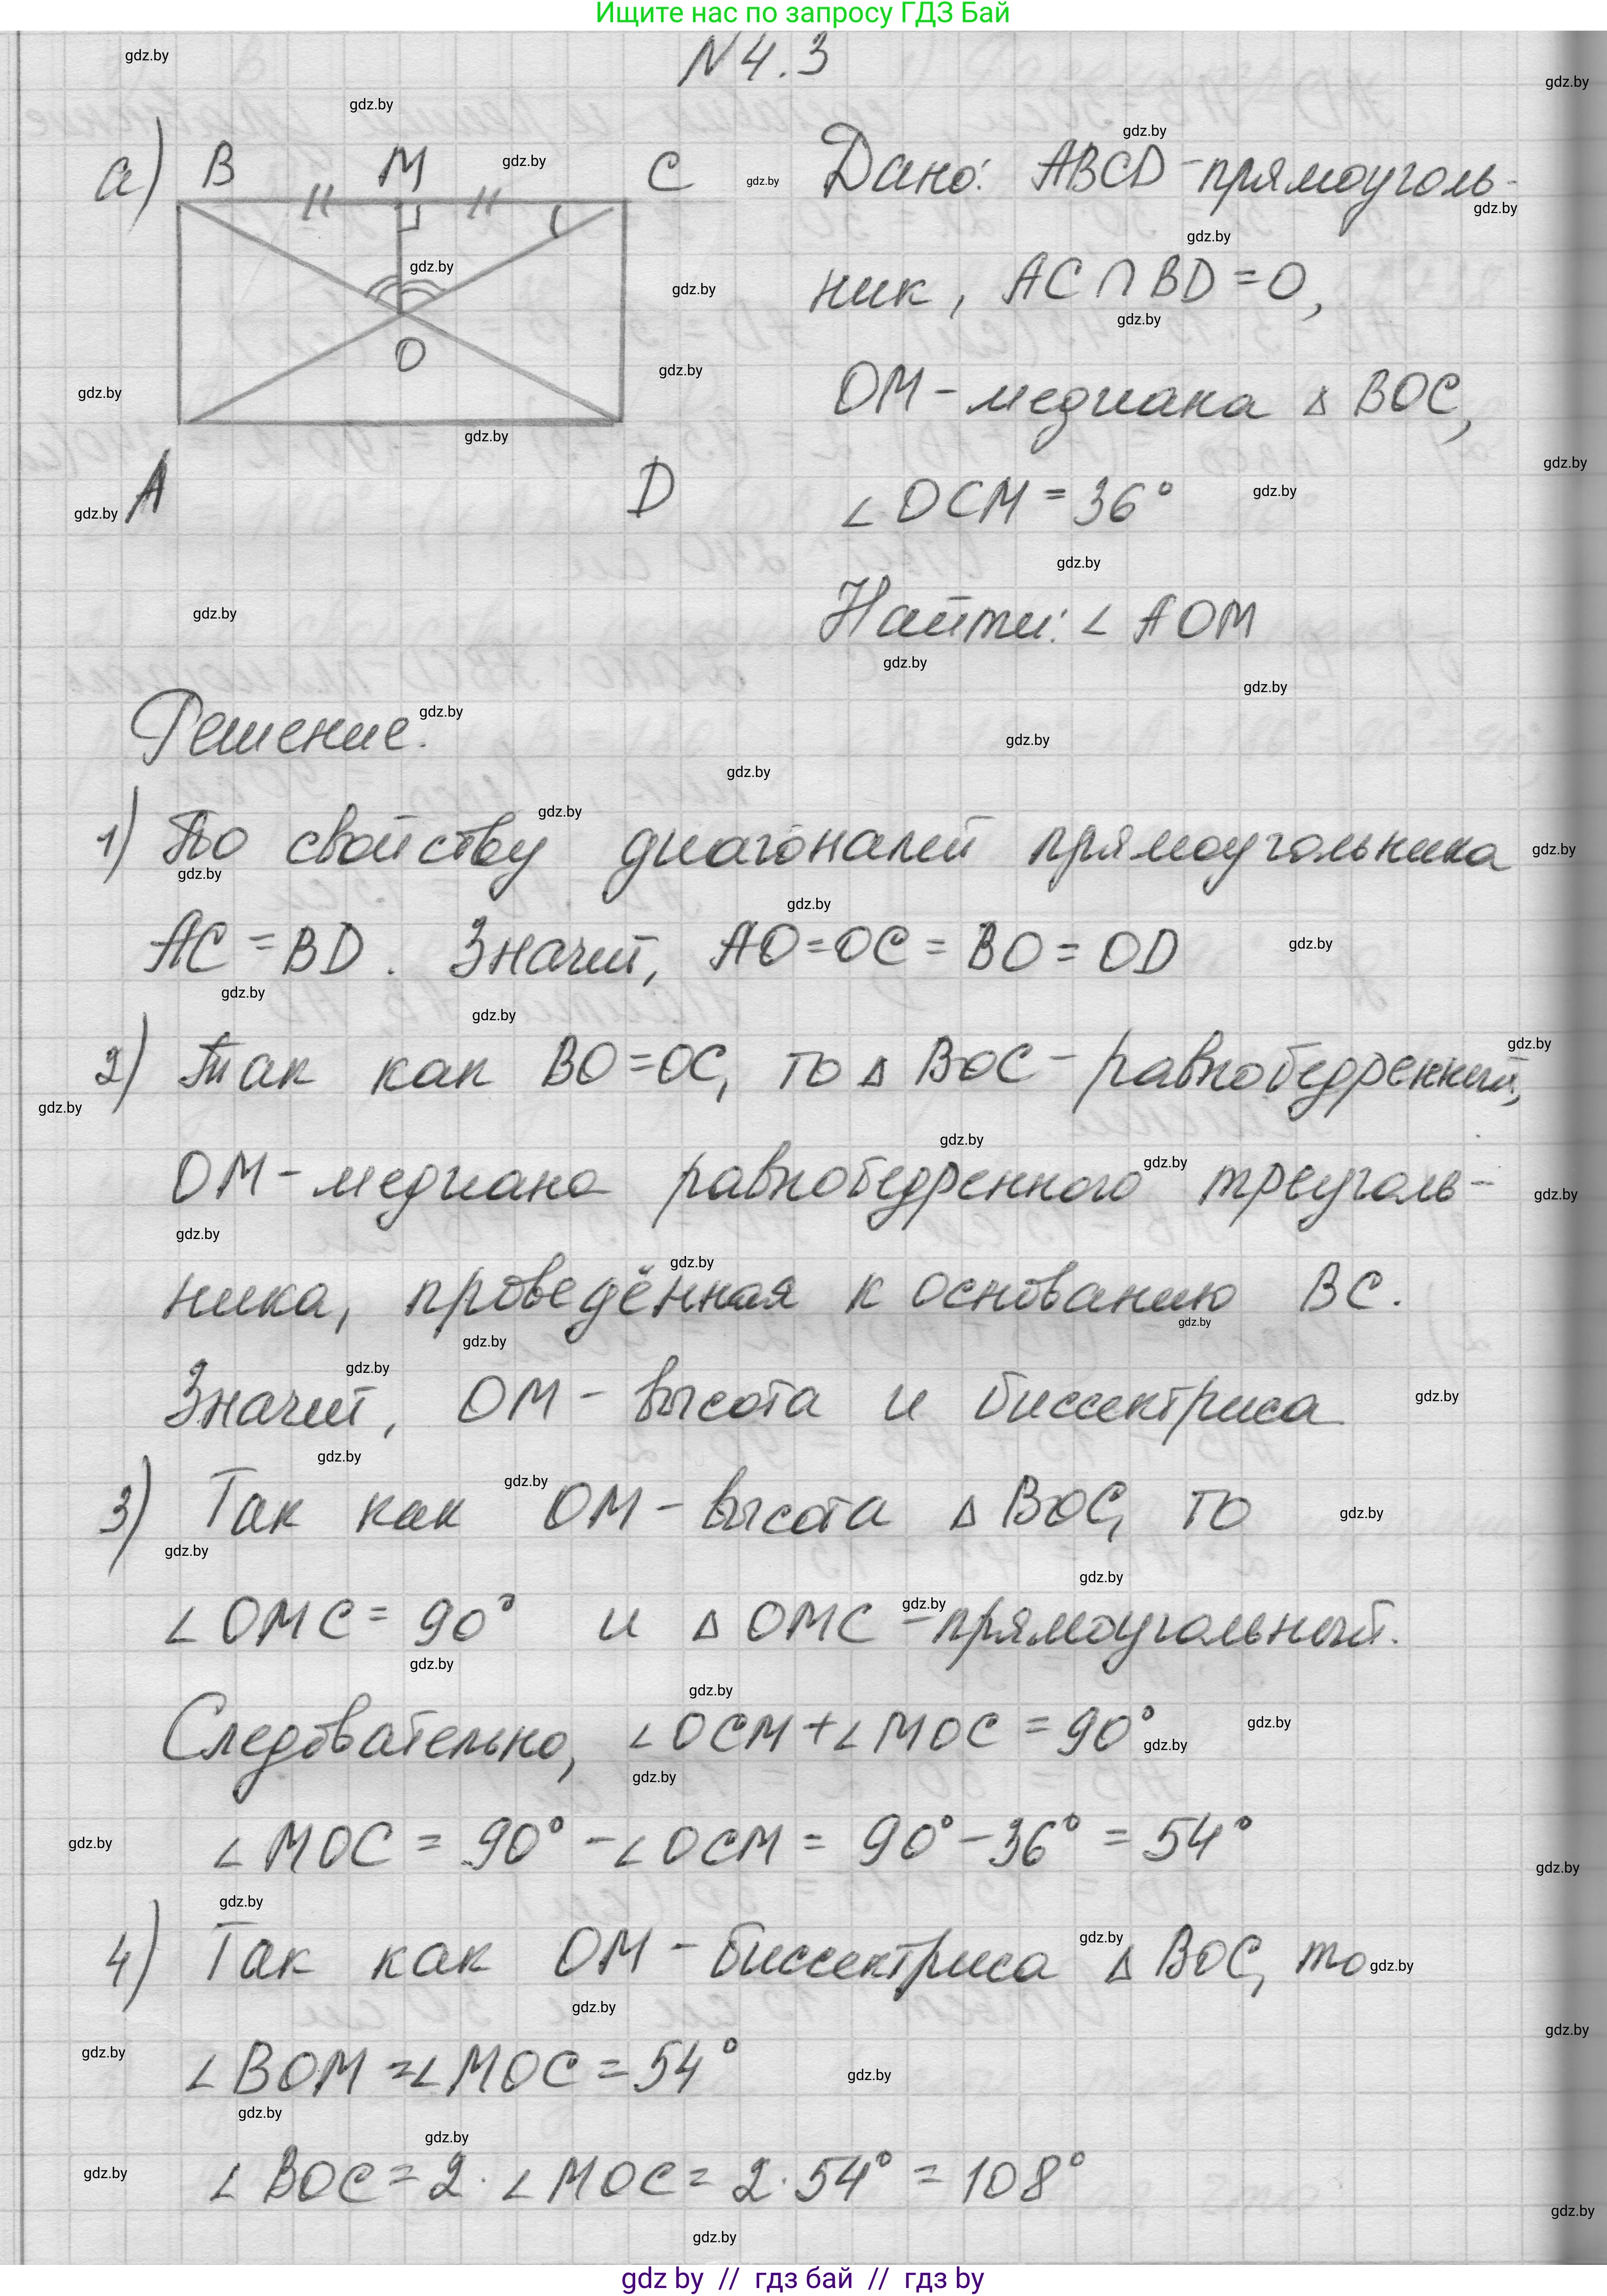 Ищите нас по запросу ГДЗ Бай
N4.3
а) B M C
A D
O
Дано: ABCD - прямоуголь-
ник, AC ∩ BD = O,
OM - медиана △ BOC,
∠ OCM = 36°
Найти: ∠ AOM
Решение.
1) По свойству диагоналей прямоугольника
AC = BD. Значит, AO = OC = BO = OD
2) Так как BO = OC, то △ BOC - равнобедренный,
OM - медиана равнобедренного треуголь-
ника, проведённая к основанию BC.
Значит, OM - высота и биссектриса
3) Так как OM - высота △ BOC, то
∠ OMC = 90° и △ OMC - прямоугольный.
Следовательно, ∠ OCM + ∠ MOC = 90°
∠ MOC = 90° - ∠ OCM = 90° - 36° = 54°
4) Так как OM - биссектриса △ BOC, то
∠ BOM = ∠ MOC = 54°
∠ BOC = 2 · ∠ MOC = 2 · 54° = 108°
gdz by // гдз бай // гдз by